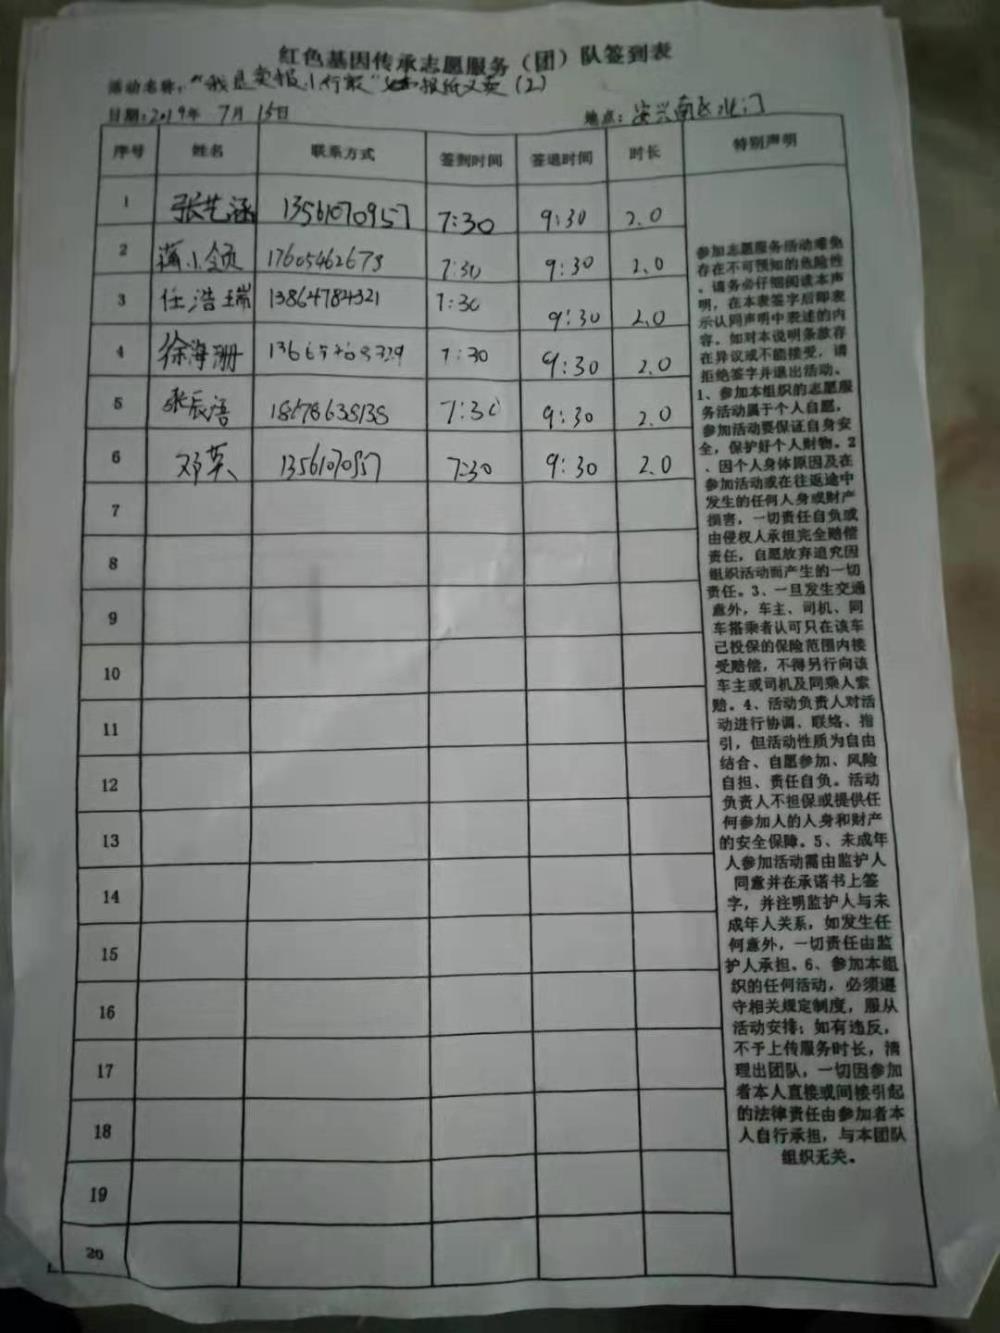 红色基因传承志愿服务（团）队签到表
活动名称："我是卖报小行家" 报纸义卖（2）
日期：2019年 7月 15日 地点：安兴南区北门
序号 姓名 联系方式 签到时间 签退时间 时长 特别声明
1 张艺涵 13561070957 7:30 9:30 2.0
2 蒲小领 17605462678 7:30 9:30 2.0
3 任浩瑞 13864784321 7:30 9:30 2.0
4 徐海珊 7:30 9:30 2.0
5 张辰语 18678638138 7:30 9:30 2.0
6 邓英 13561070957 7:30 9:30 2.0
7
8
9
10
11
12
13
14
15
16
17
18
19
20
参加志愿服务活动难免
存在不可预知的危险性
，请务必仔细阅读本声
明，在本表签字后即表
示认同声明中表述的内
容。如对本说明条款存
在异议或不能接受，请
拒绝签字并退出活动。
1、参加本组织的志愿服
务活动属于个人自愿，
参加活动要保证自身安
全，保护好个人财物。2
、因个人身体原因及在
参加活动或在往返途中
发生的任何人身或财产
损害，一切责任自负或
由侵权人承担完全赔偿
责任，自愿放弃追究因
组织活动而产生的一切
责任。3、一旦发生交通
意外，车主、司机、同
车搭乘者认可只在该车
已投保的保险范围内接
受赔偿，不得另行向该
车主或司机及同乘人索
赔。4、活动负责人对活
动进行协调、联络、指
引，但活动性质为自由
结合、自愿参加、风险
自担、责任自负。活动
负责人不担保或提供任
何参加人的人身和财产
的安全保障。5、未成年
人参加活动需由监护人
同意并在承诺书上签
字，并注明监护人与未
成年人关系，如发生任
何意外，一切责任由监
护人承担。6、参加本组
织的任何活动，必须遵
守相关规定制度，服从
活动安排；如有违反，
不予上传服务时长，清
理出团队，一切因参加
者本人直接或间接引起
的法律责任由参加者本
人自行承担，与本团队
组织无关。